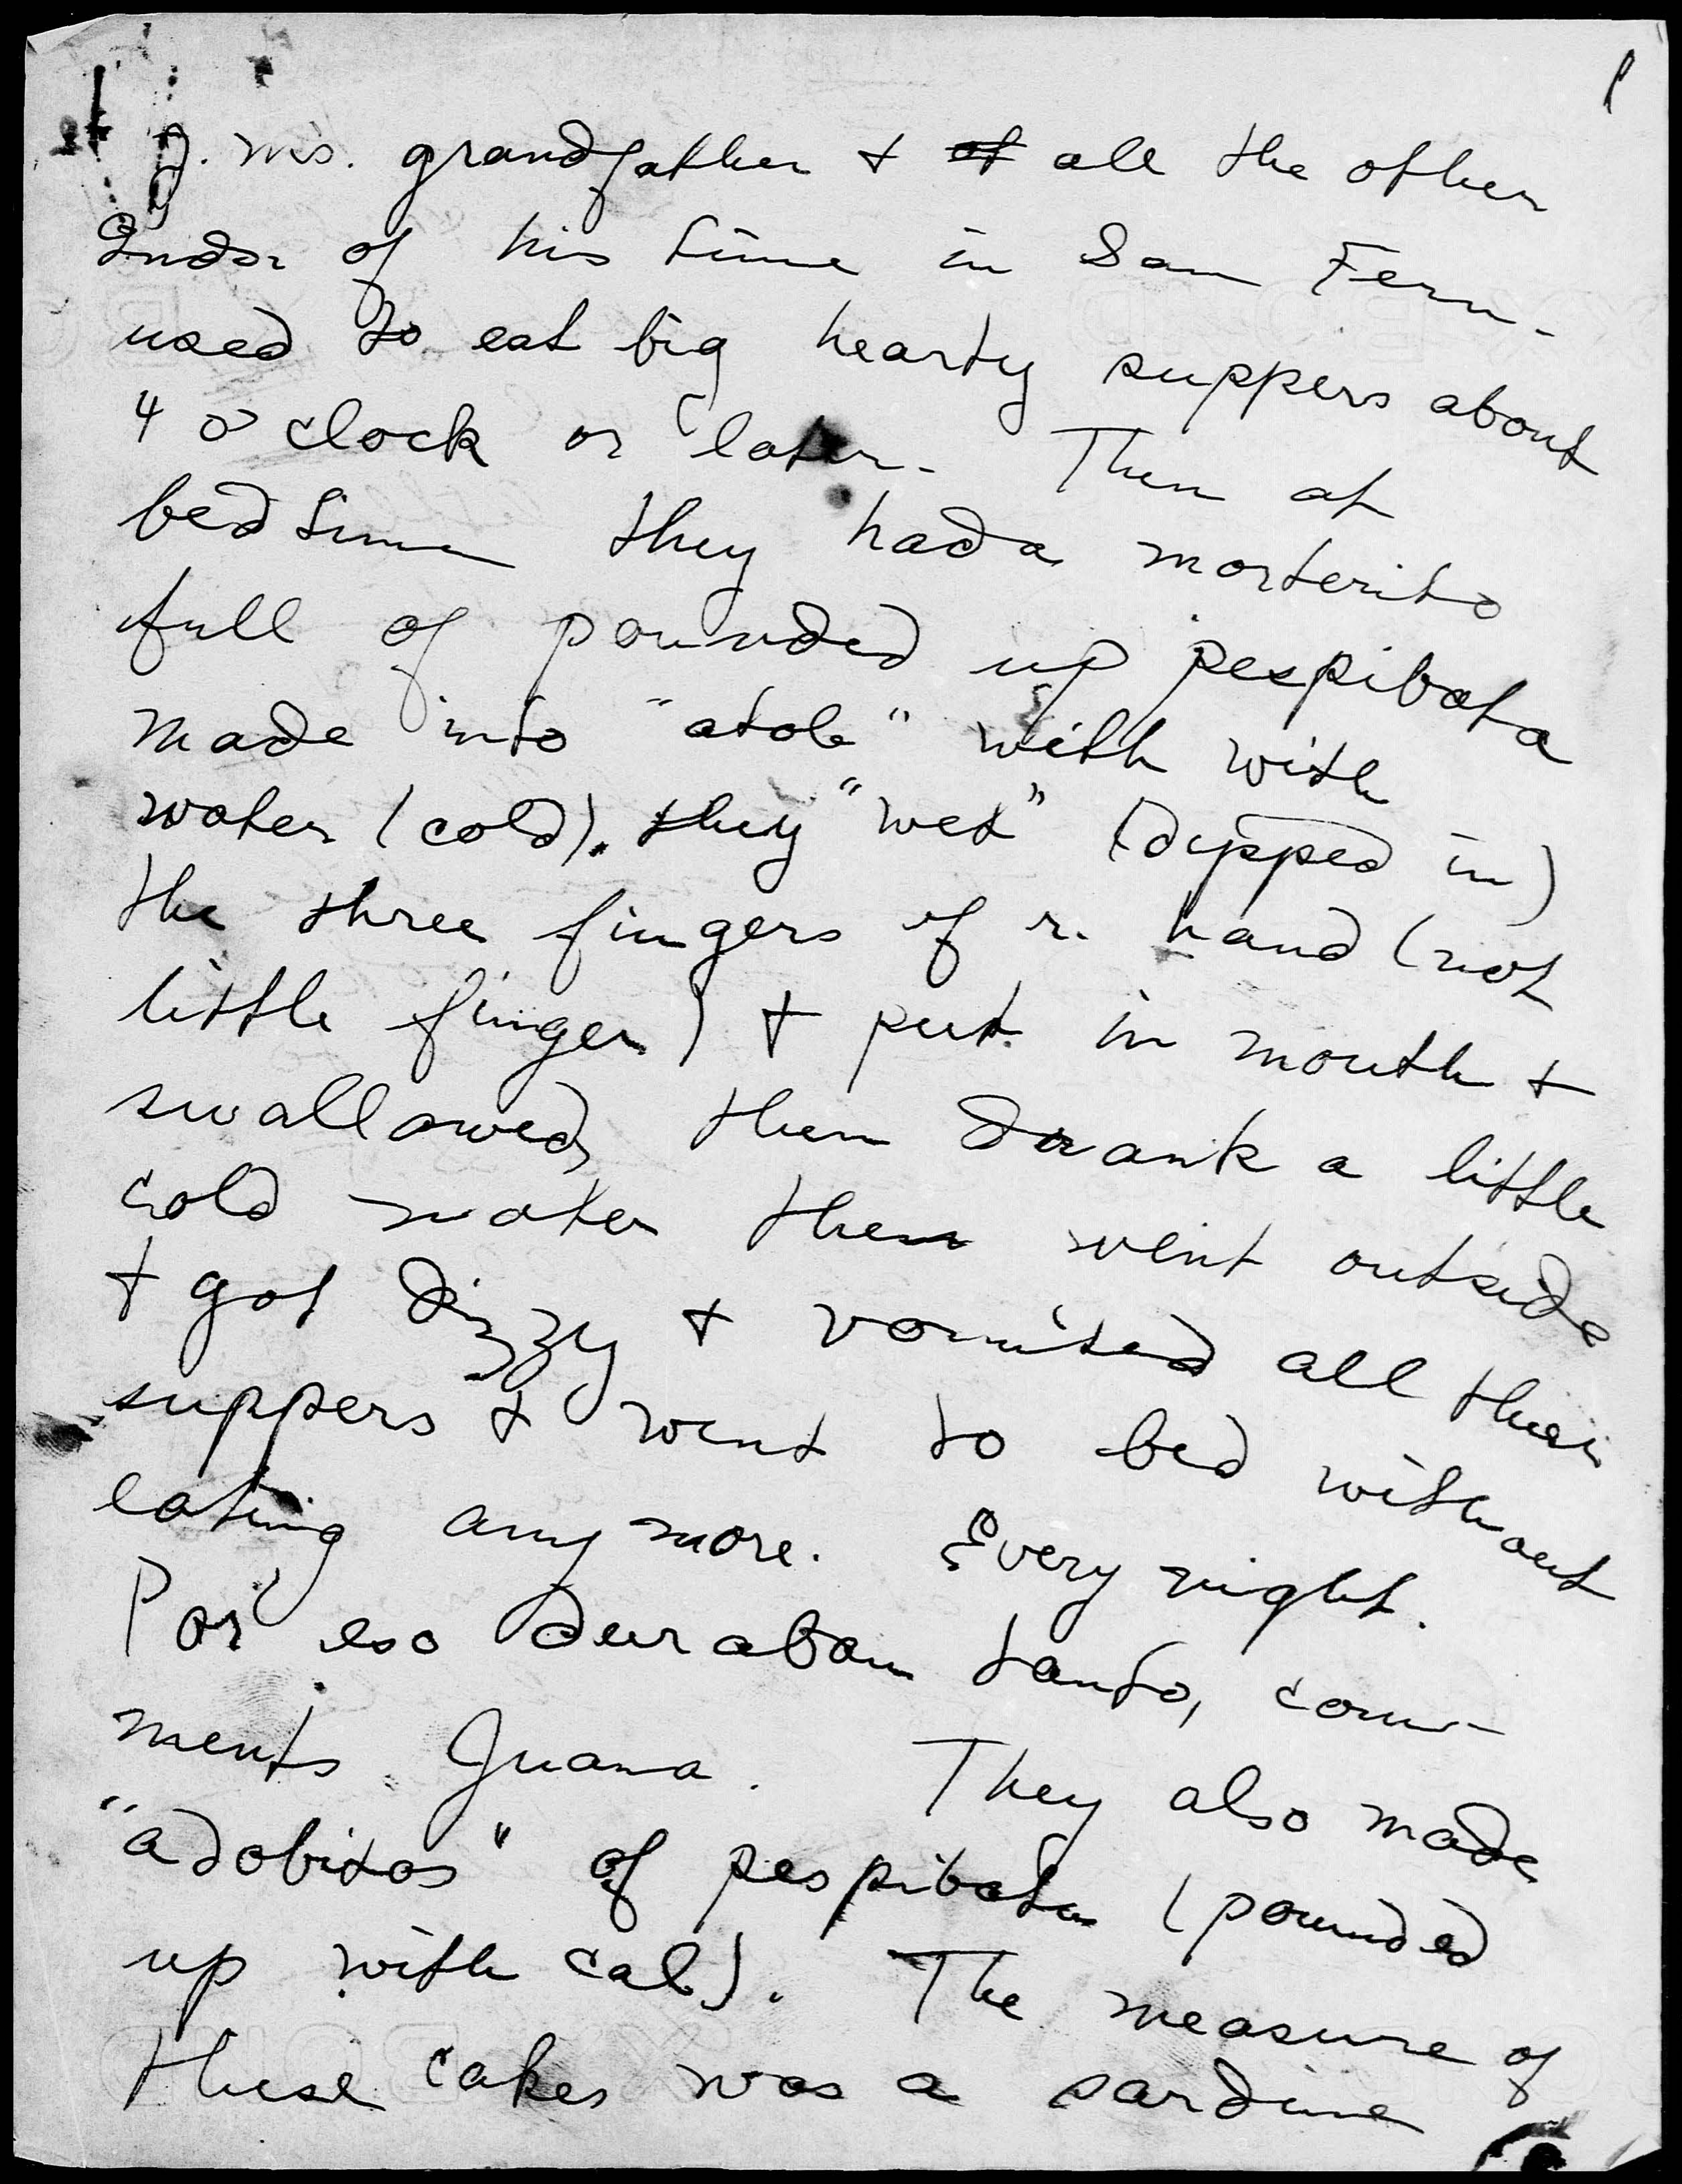 J. M's. grandfather + of all the other
Inds. of his time in San Fern.
used to eat big hearty suppers about
4 o'clock or later. Then at
bedtime they had a morterito
full of pounded up pespibata
made into "atole" with with
water (cold). they "wet" (dipped in)
the three fingers of r. hand (not
little finger) + put in mouth +
swallowed, then drank a little
cold water then went outside
+ got dizzy + vomited all their
suppers + went to bed without
eating any more. Every night.
Por eso duraban tanto, com-
ments Juana. They also made
"adobitos" of pespibata (pounded
up with cal). The measure of
these cakes was a sardine